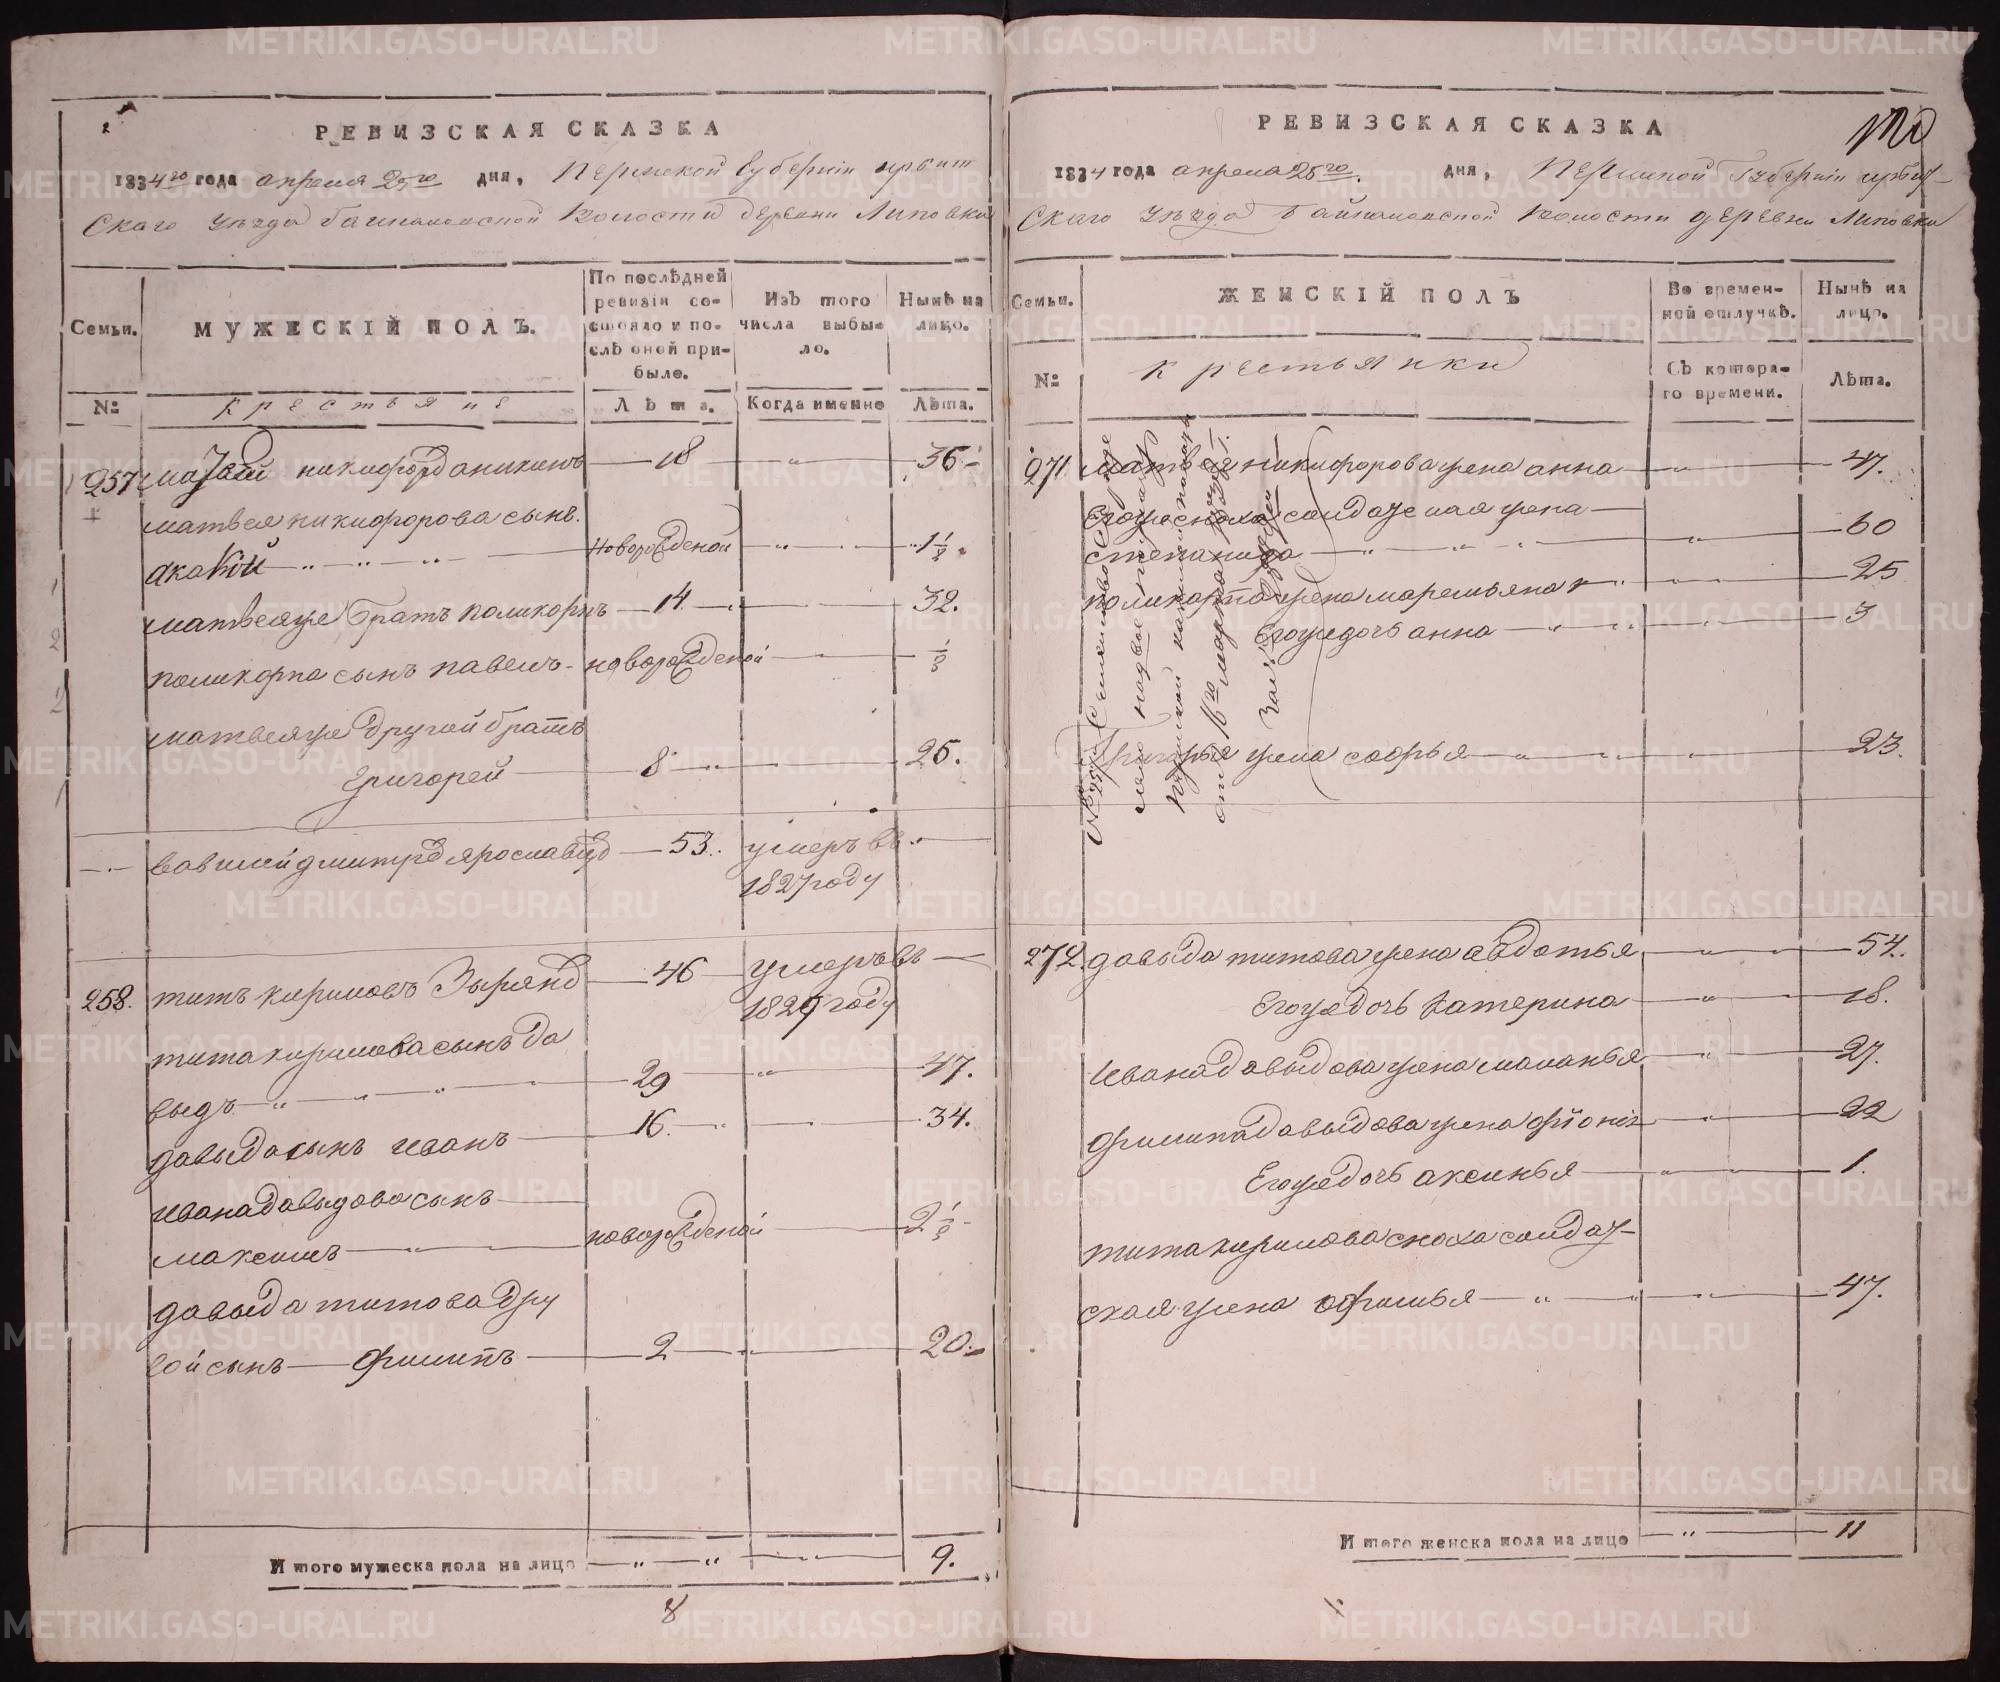 РЕВИЗСКАЯ СКАЗКА
1834го года апреля 25го дня, Пермской Губернiи ирбит
Скаго уѣзда Волости деревни Липовки
Семьи.
МУЖЕСКІЙ ПОЛЪ.
По послѣдней ревизіи состояло и послѣ оной прибыло.
Изъ того числа выбыло.
Нынѣ на лицо.
№
крестьяне
Лѣта.
Когда именно
Лѣта.
257 матвей никифоровъ аникинъ 18 36
матвея никифорова сынъ.
акакий новорожденой 1 1/2
матвея же братъ поликорпъ 14 32.
поликорпа сынъ павелъ новорожденой
матвея же другой братъ
григорей 8 26.
дмитрѣ 53. умеръ въ
1827 году
258. титъ кириловъ Зыряно 46 умеръ въ
1829 году
тита кирилова сынъ да
выдъ 29 47.
давыда сынъ иванъ 16. 34.
ивана давыдова сынъ
максимъ новорожденой 2 1/2
давыда титова дру
гой сынъ филипъ 2 20.
Итого мужеска пола на лицо 9.
8
РЕВИЗСКАЯ СКАЗКА
1834 года апреля 25го дня, Пермской Губернiи ирбит-
Скаго уѣзда Волости деревни Липовки
Семьи.
ЖЕНСКІЙ ПОЛЪ
Во временной отлучкѣ.
Нынѣ на лицо.
№
крестьянки
Съ котораго времени.
Лѣта.
271 матвея никифорова жена анна 47.
Егоже сноха солдатская жена
степанида 60
поликарпа жена маремьяна 25
Егоже дочь анна 3
Григорья жена софья 23.
272. давыда титова жена авдотья 54.
Егоже дочь катерина 18.
Ивана давыдова жена маланья 27.
филипа давыдова жена 22
Егоже дочь аксинья 1.
тита кирилова сноха солдат-
ская жена офимья 47.
Итого женска пола на лицо 11
METRIKI.GASO-URAL.RU